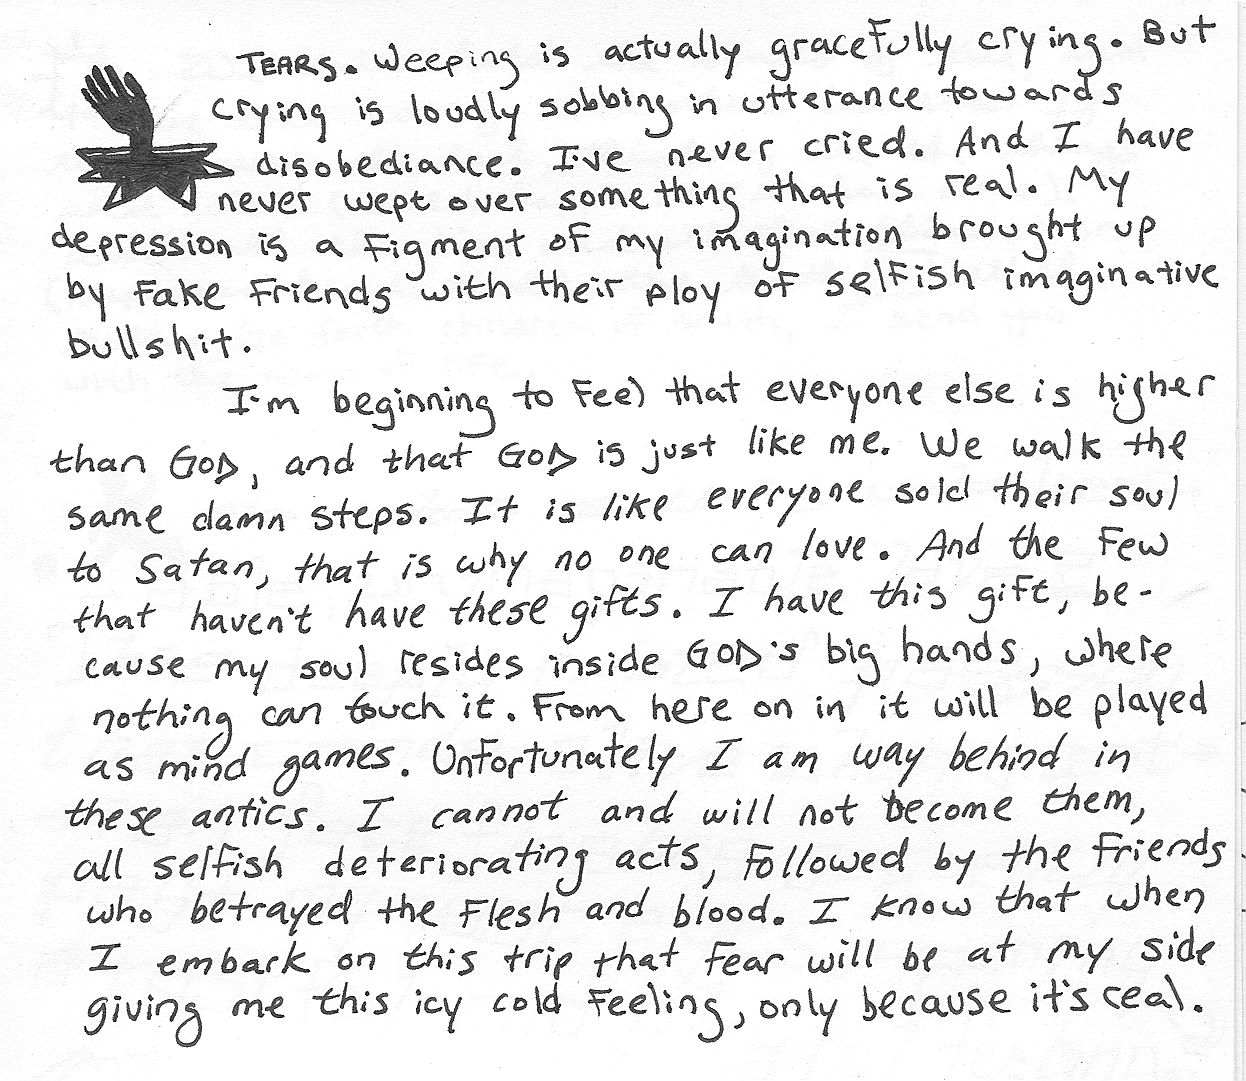 TEARS. Weeping is actually gracefully crying. But
crying is loudly sobbing in utterance towards
disobediance. I've never cried. And I have
never wept over something that is real. My
depression is a figment of my imagination brought up
by fake friends with their ploy of selfish imaginative
bullshit.
I'm beginning to feel that everyone else is higher
than GOD, and that GOD is just like me. We walk the
same damn steps. It is like everyone sold their soul
to Satan, that is why no one can love. And the few
that haven't have these gifts. I have this gift, be-
cause my soul resides inside GOD's big hands, where
nothing can touch it. From here on in it will be played
as mind games. Unfortunately I am way behind in
these antics. I cannot and will not become them,
all selfish deteriorating acts, followed by the friends
who betrayed the flesh and blood. I know that when
I embark on this trip that fear will be at my side
giving me this icy cold feeling, only because it's real.